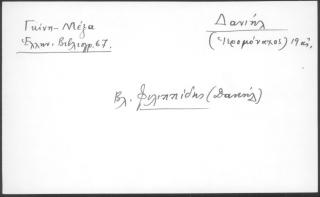 Γκίνη-Μέξα
Ἑλλην. Βιβλιογρ. 67.
Δανιήλ
(Ἱερομόναχος) 19 αἰ.
Βλ. Φιλιππίδης (Δανιήλ)